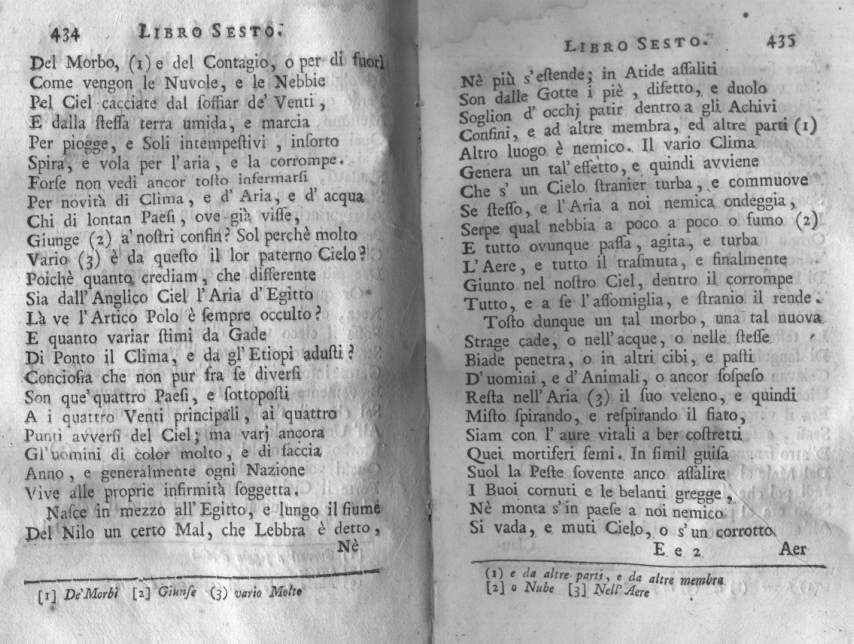 434 LIBRO SESTO.
Del Morbo, (1) e del Contagio, o per di fuori
Come vengon le Nuvole, e le Nebbie
Pel Ciel cacciate dal ſoffiar de' Venti,
E dalla ſteſſa terra umida, e marcia
Per piogge, e Soli intempeſtivi, inſorto
Spira, e vola per l'aria, e la corrompe.
Forſe non vedi ancor toſto infermarſi
Per novità di Clima, e d'Aria, e d'acqua
Chi di lontan Paeſi, ove già viſſe,
Giunge (2) a' noſtri confin? Sol perchè molto
Vario (3) è da queſto il lor paterno Cielo?
Poichè quanto crediam, che differente
Sia dall'Anglico Ciel l'Aria d'Egitto
Là ve l'Artico Polo è ſempre occulto?
E quanto variar ſtimi da Gade
Di Ponto il Clima, e da gl'Etiopi aduſti?
Concioſia che non pur fra ſe diverſi
Son que' quattro Paeſi, e ſottopoſti
A i quattro Venti principali, ai quattro
Punti avverſi del Ciel; ma varj ancora
Gl'uomini di color molto, e di faccia
Anno, e generalmente ogni Nazione
Vive alle proprie infirmità ſoggetta.
Naſce in mezzo all'Egitto, e lungo il fiume
Del Nilo un certo Mal, che Lebbra è detto,
Nè
[1] De' Morbi [2] Giunſe (3) vario Molto
LIBRO SESTO. 435
Nè più s'eſtende; in Atide aſſaliti
Son dalle Gotte i piè, difetto, e duolo
Soglion d'occhj patir dentro a gli Achivi
Confini, e ad altre membra, ed altre parti (1)
Altro luogo è nemico. Il vario Clima
Genera un tal'effetto, e quindi avviene
Che s'un Cielo ſtranier turba, e commuove
Se ſteſſo, e l'Aria a noi nemica ondeggia,
Serpe qual nebbia a poco a poco o fumo (2)
E tutto ovunque paſſa, agita, e turba
L'Aere, e tutto il traſmuta, e finalmente
Giunto nel noſtro Ciel, dentro il corrompe
Tutto, e a ſe l'aſſomiglia, e ſtranio il rende.
Toſto dunque un tal morbo, una tal nuova
Strage cade, o nell'acque, o nelle ſteſſe
Biade penetra, o in altri cibi, e paſti
D'uomini, e d'Animali, o ancor ſoſpeſo
Reſta nell'Aria (3) il ſuo veleno, e quindi
Miſto ſpirando, e reſpirando il fiato,
Siam con l'aure vitali a ber coſtretti
Quei mortiferi ſemi. In ſimil guiſa
Suol la Peſte ſovente anco aſſalire
I Buoi cornuti e le belanti gregge,
Nè monta s'in paeſe a noi nemico
Si vada, e muti Cielo, o s'un corrotto
E e 2 Aer
(1) e da altre parti, e da altre membra
[2] o Nube [3] Nell'Aere